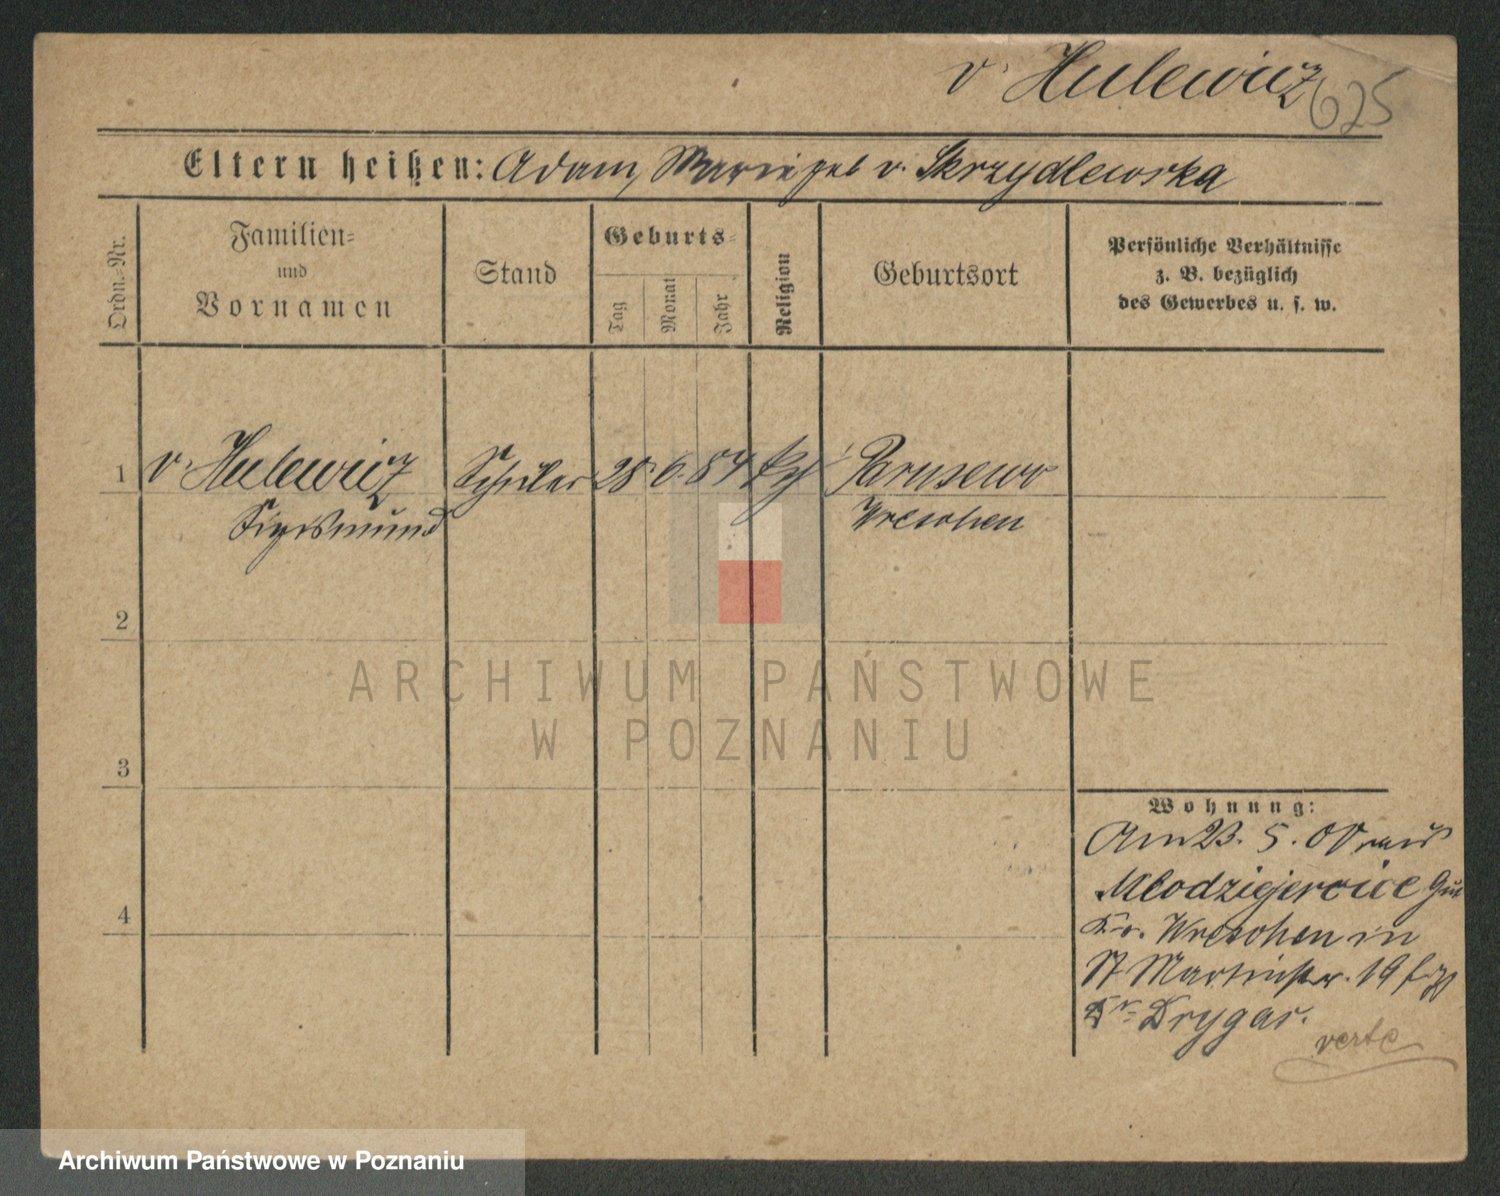 v. Hulewicz
625
Eltern heißen: Adam, Marie geb v. Skrzydlewska
Ordn.-Nr.
Familien-
und
Vornamen
Stand
Geburts-
Tag
Monat
Jahr
Religion
Geburtsort
Persönliche Verhältnisse
z. B. bezüglich
des Gewerbes u. s. w.
1 v. Hulewicz Schüler 28. 6. 84 kth Parusewo
Sigismund Wreschen
2
3
4
Wohnung:
Am 23. 5. 00 aus
Mlodziejewice Gut
Kr. Wreschen in
St Martinstr. 19
Dr Drygas.
verte
ARCHIWUM PAŃSTWOWE
W POZNANIU
Archiwum Państwowe w Poznaniu